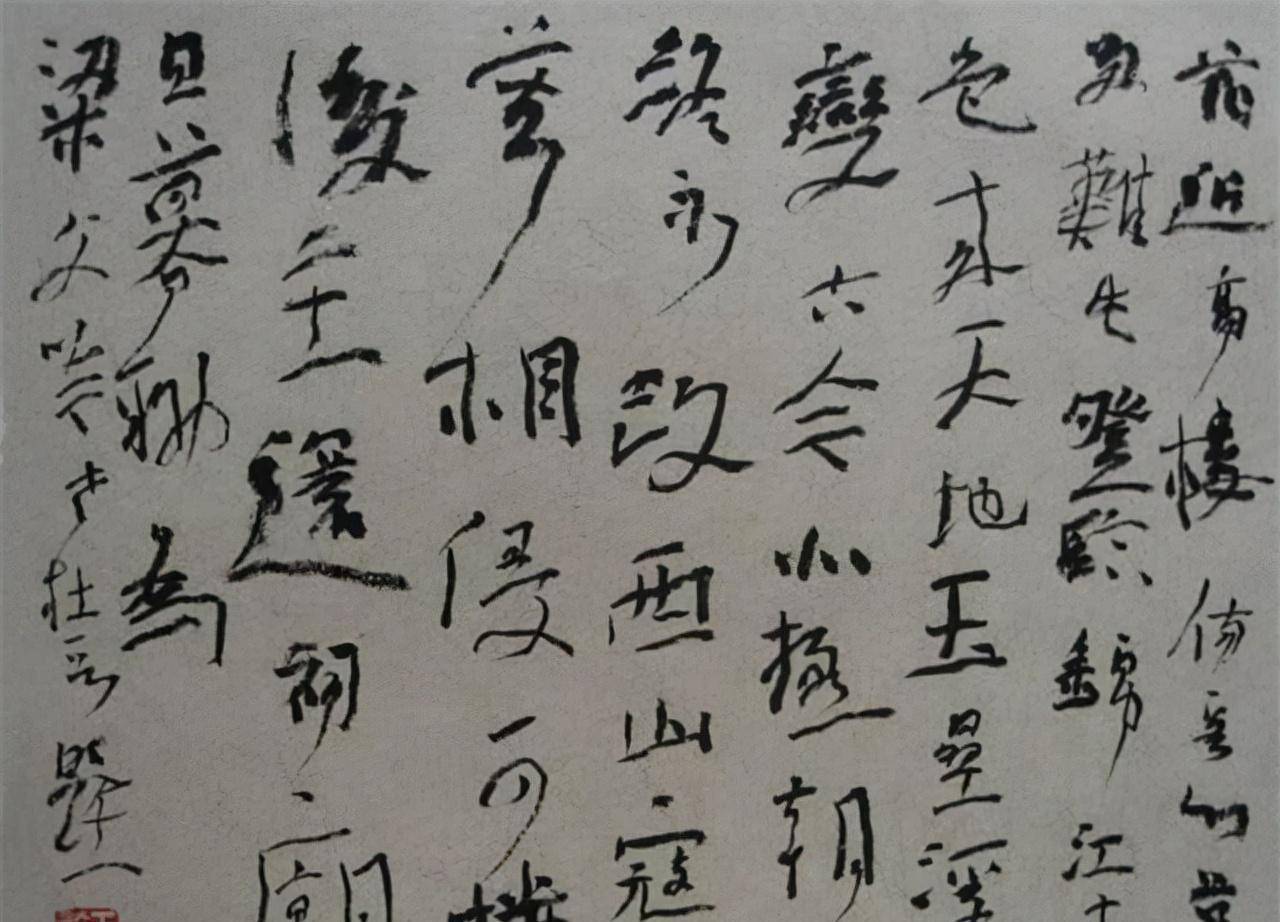 花近高樓傷客心
多難此登臨錦江
色來天地玉壘浮
變古今北極朝
終不改西山寇
莫相侵可憐
後主還祠廟
日暮聊為
梁父吟 老杜句